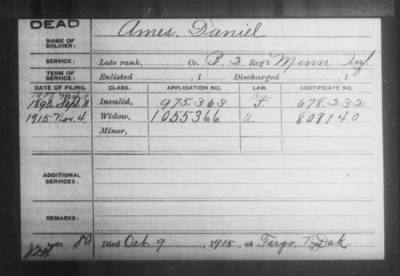 DEAD
NAME OF SOLDIER: Ames, Daniel
SERVICE: Late rank, Co. B. 2 Reg't Minn Inf
TERM OF SERVICE: Enlisted , 1 Discharged , 1
DATE OF FILING. CLASS. APPLICATION NO. LAW. CERTIFICATE NO.
1890 Sept 11 Invalid, 975.363 678.232
1915 Nov. 4, Widow, 1055366 808140
Minor,
ADDITIONAL SERVICES.
REMARKS:
Died Oct 9 , 1915, at Fargo, N Dak